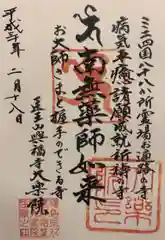 ミニ四国八十八ケ所霊場お通路の寺
病気平癒諸願成就祈祷の寺
南無薬師如来
お大師さまと握手のできる寺
医王山興福寺大楽院
平成三十年 二月十八日